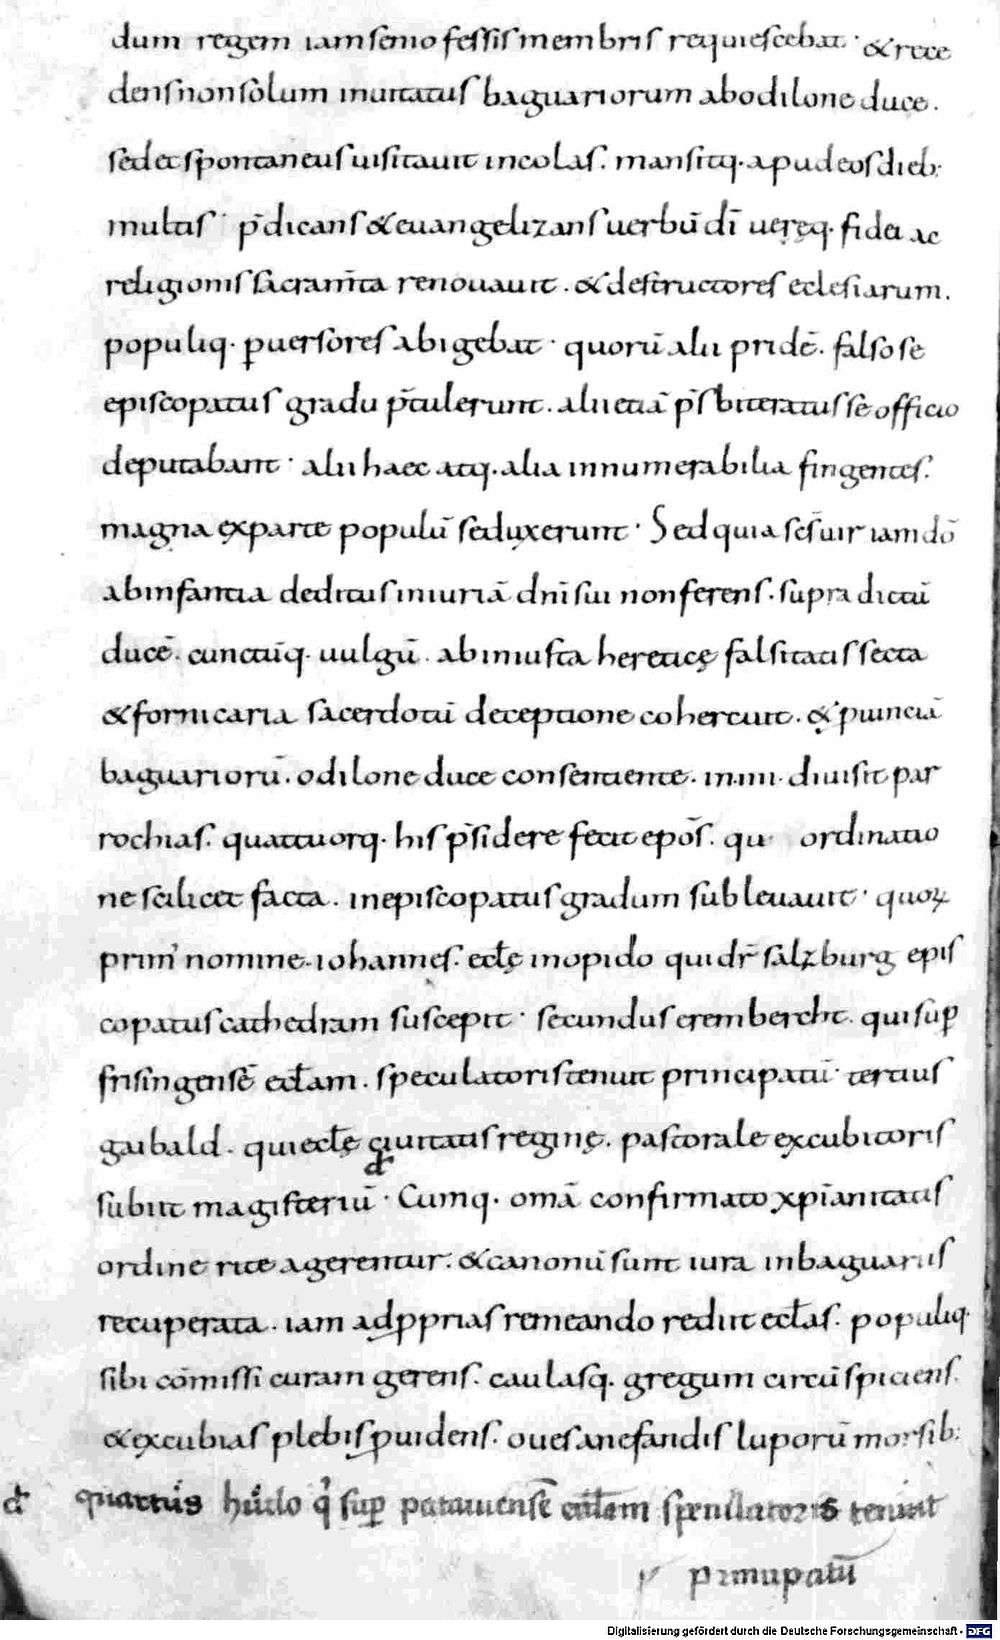 dum regem iam senio fessis membris requiescebat · & rece
dens non solum inuitatus baguariorum ab odilone duce .
sed et spontaneus uisitauit incolas . mansitq · apud eos dieb :
multis · p̄dicans & euangelizans uerbū dī ueręq · fidei ac
religionis sacram̄ta renouauit . & destructores eclesiarum .
populiq · ꝑuersores abigebat · quorū alii pridē . falso se
episcopatus gradu p̄tulerunt . alii etiā p̄sbiteratus se officio
deputabant · alii haec atq · alia innumerabilia fingentes .
magna ex parte populū seduxerunt · Sed quia sc̄s uir iam dō
ab infantia deditus iniuriā dnī sui non ferens . supra dictū
ducē . cunctūq · uulgū . ab iniusta hereticę falsitatis secta
& fornicaria sacerdotū deceptione cohercuit . & ꝓuinciā
baguariorū . odilone duce consentiente . in · iiii · diuisit par
rochias . quattuorq · his p̄sidere fecit epōs . qui ordinatio
ne scilicet facta . in episcopatus gradum subleuauit · quoꝝ
prim' nomine · iohannes · eclę in opido qui dr̄ salzburg epis
copatus cathedram suscepit · secundus erembercht . qui sup̄
frisingensē ecl̄am . speculatoris tenuit principatū · tertius
gaibald . qui ecl̄ę ciuitatis reginę . pastorale excubitoris
subiit magisteriū · Cumq · om̄a confirmato xp̄ianitatis
ordine rite agerentur . & canonū sunt iura in baguariis
recuperata . iam ad ꝓprias remeando rediit ecl̄as . populiq ·
sibi cōmissi curam gerens . caulasq . gregum circūspiciens .
& excubias plebis ꝓuidens . oues a nefandis luporū morsib :
quartus huido q' sup̄ patauiensē ecclām speculatoris tenuit
principatū
Digitalisierung gefördert durch die Deutsche Forschungsgemeinschaft - DFG